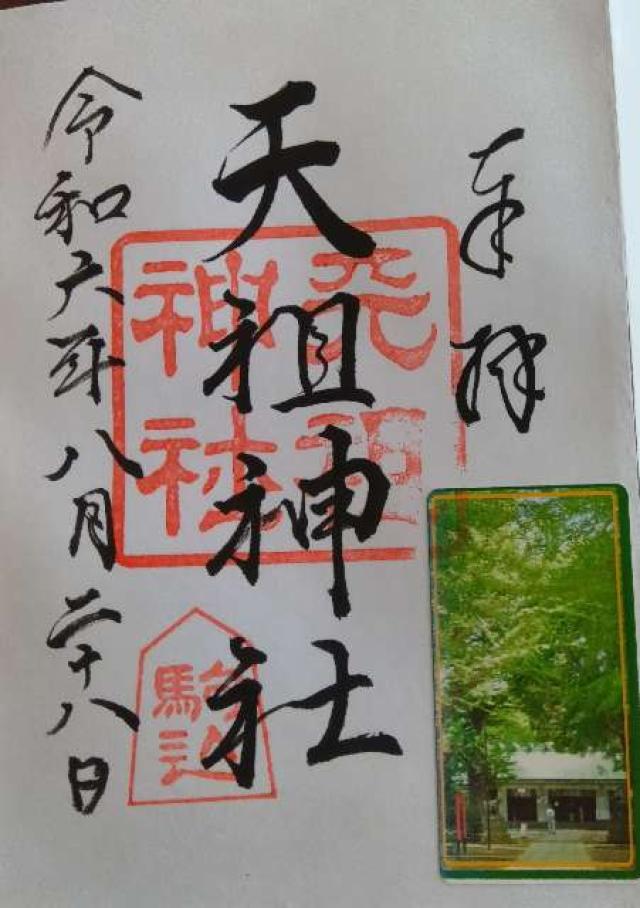 奉拝
天祖神社
天祖
神社
駒込
令和六年八月二十八日